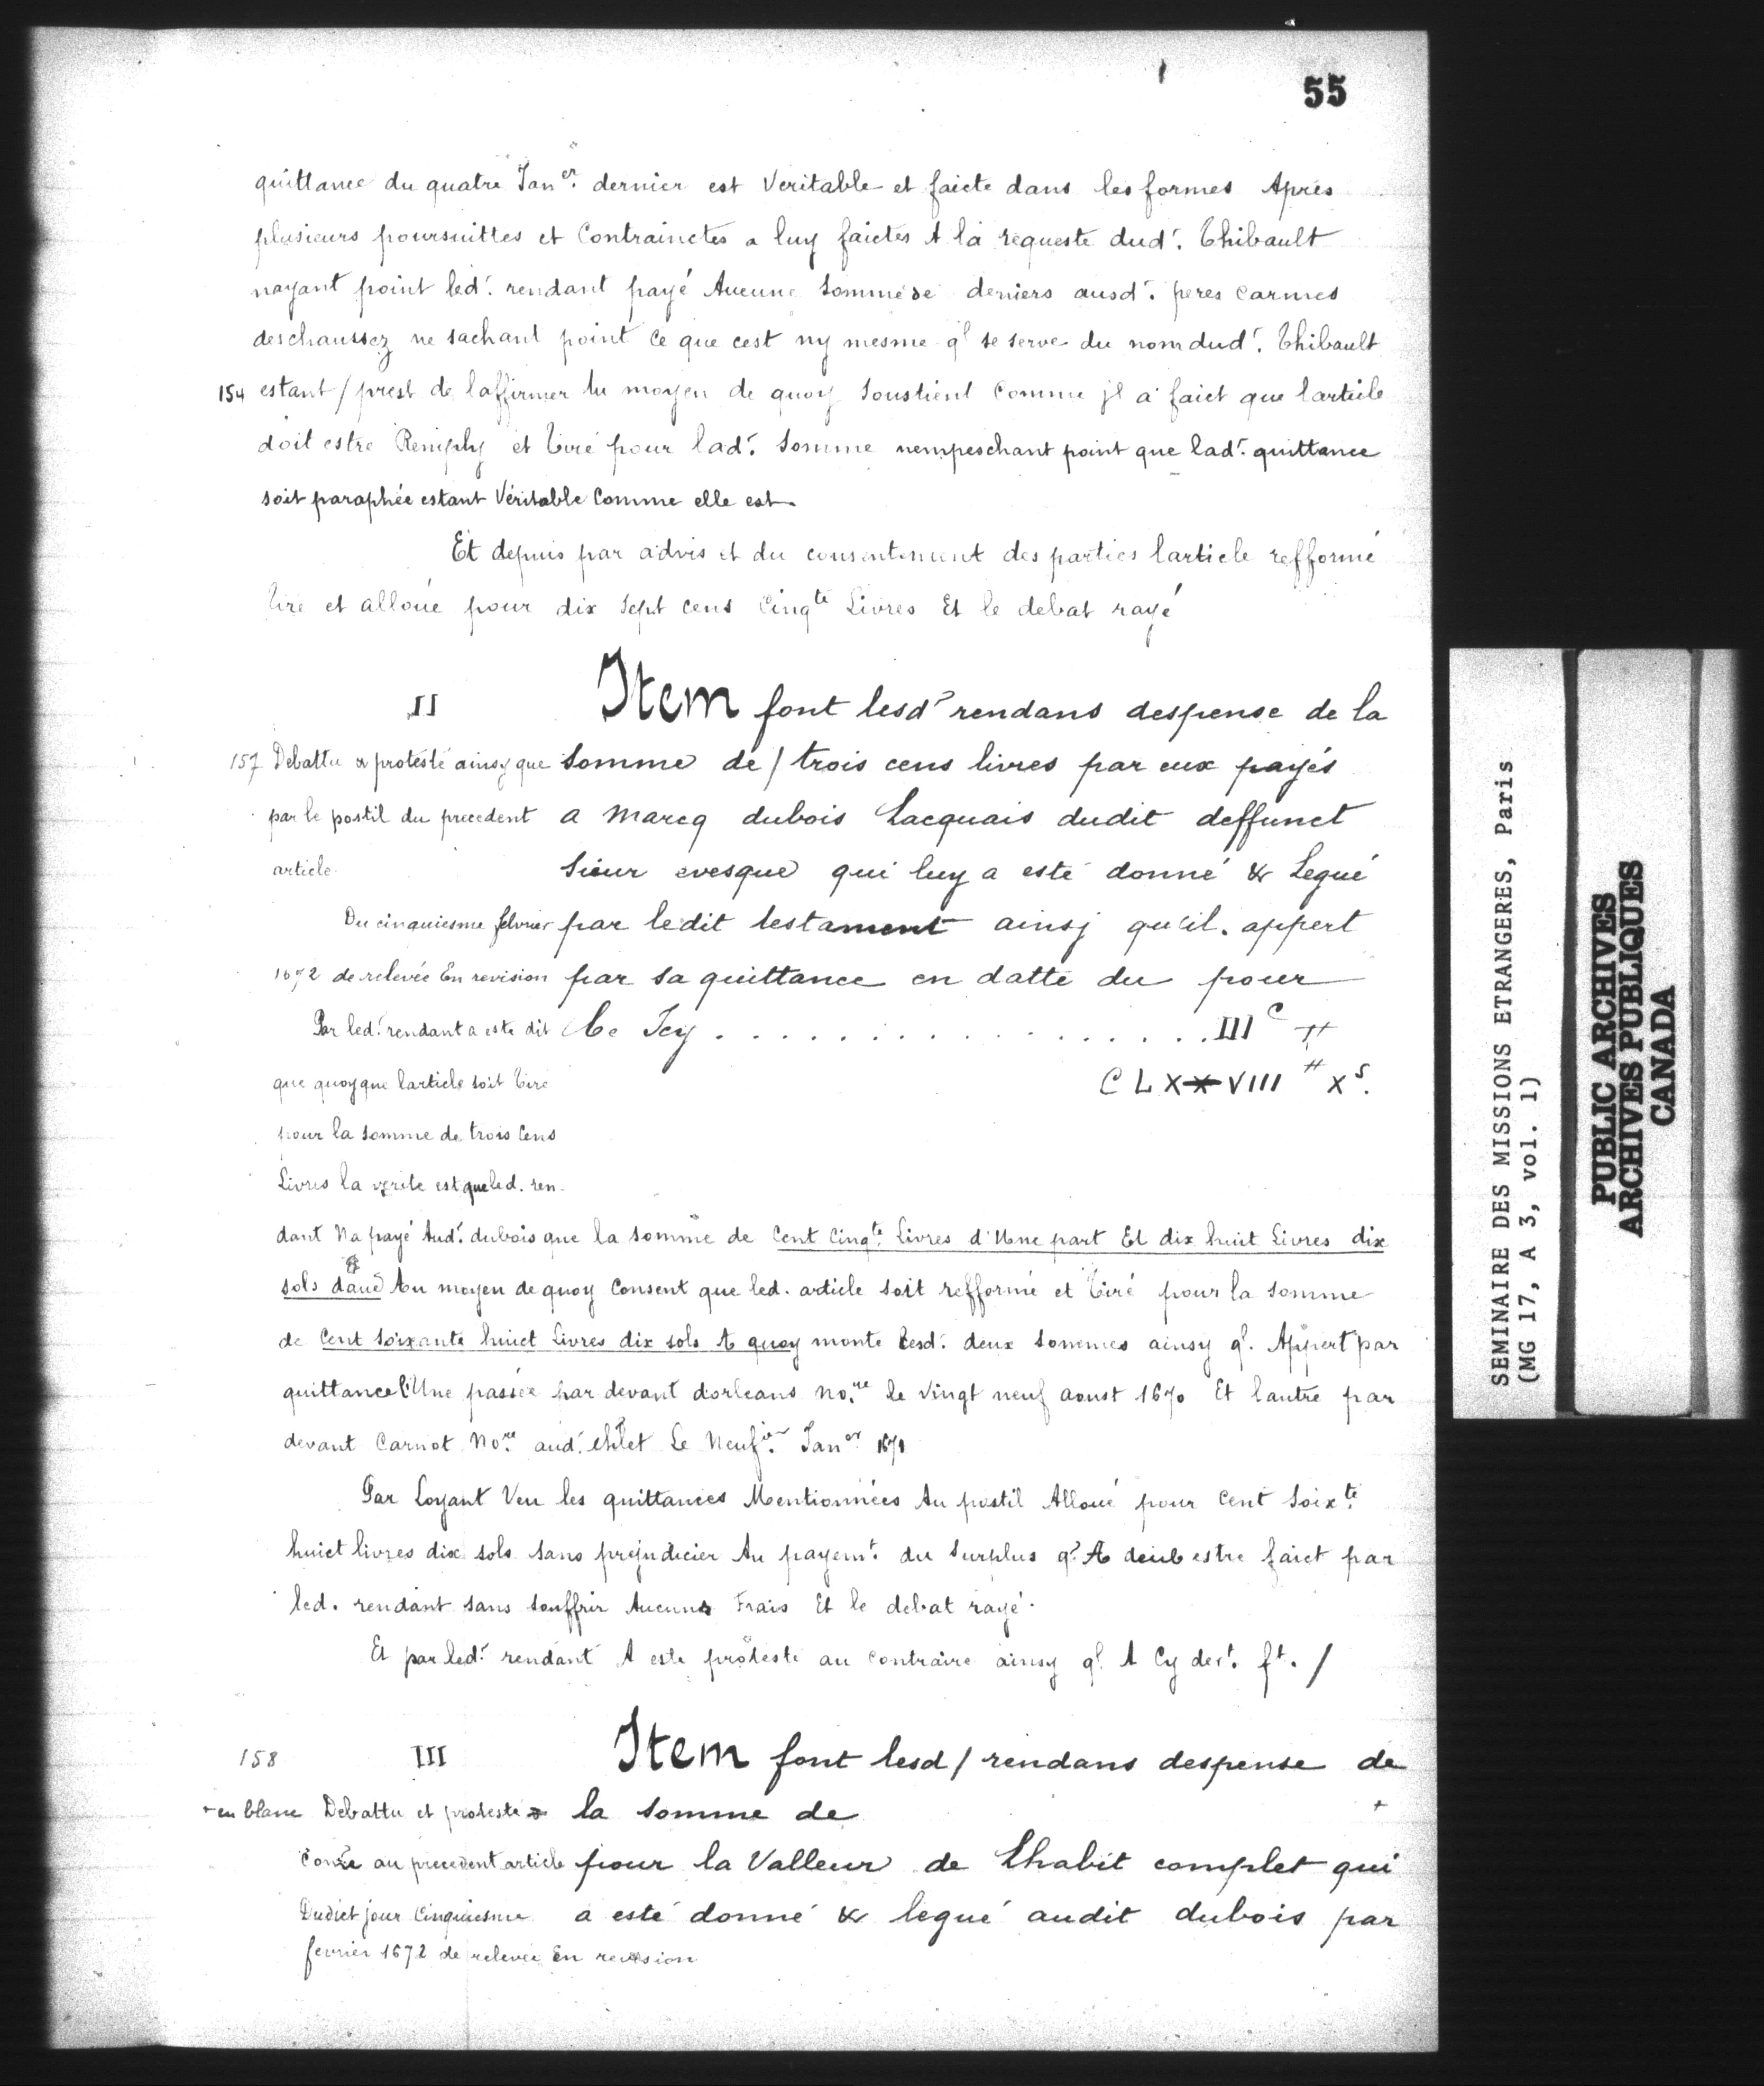 55
quittance du quatre Jan.er dernier est Veritable et faicte dans les formes Apres
plusieurs poursuittes et Contrainctes a luy faictes A la requeste dud.t Thibault
nayant point led.t rendant payé Aucune Somme de deniers ausd.t peres carmes
deschaussez ne sachant point ce que cest ny mesme q.l se serve du nom dud.t Thibault
154 estant / prest de laffirmer Au moyen de quoy Soustient Comme jl a faict que larticle
doit estre Remply et tiré pour lad.t Somme nempeschant point que lad.t quittance
soit paraphée estant Véritable Comme elle est.
Et depuis par advis et du consentement des parties larticle refformé
tiré et alloué pour dix Sept cens Cinq.te Livres Et le debat rayé
II Item font lesd.t rendans despense de la
157 Debattu & protesté ainsy que Somme de / trois cens livres par eux payés
par le postil du precedent a Marcq dubois Lacquais dudit deffunct
article. Sieur evesque qui luy a esté donné & Legué
Du cinquiesme febvrier par ledit testament ainsj qu'il appert
1672 de relevée En revision par sa quittance en datte du pour
Par led.t rendant a este dit Ce Jcy . . . . . . . . . . . . . . . . . III C ₶
que quoyque larticle soit tiré C L X X VIII ₶ X s.
pour la somme de trois Cens
Livres la verite est que led. ren.
dant Na payé Aud.t dubois que la somme de Cent Cinq.te Livres d'Une part Et dix huit Livres dix
sols dau.e Au moyen de quoy Consent que led. article soit refformé et tiré pour la somme
de Cent Soixante huict Livres dix sols A quoy monte lesd.t deux Sommes ainsy q.l Appert par
quittance l'Une passée par devant dorleans no.re le Vingt neuf aoust 1670 Et lautre par
devant Carnot No.re aud.t chlet Le Neuf.ie Jan.er 1671
Par Loyant Veu les quittances Mentionnées Au postil Alloué pour Cent Soix.te
huict livres dix sols sans prejudicier Au payem.t du Surplus q.l A deub estre faict par
led. rendant sans souffrir Aucuns Frais Et le debat rayé.
Et par led.t rendant A este protesté au contraire ainsy q.l A Cy der.t f.t. /
158 III Item font lesd / rendans despense de
+ en blanc Debattu et protesté la Somme de +
Co.e au precedent article pour la Valleur de Lhabit complet qui
Dudict jour Cinquiesme a esté donné & legué audit dubois par
fevrier 1672 de relevée En revision
SEMINAIRE DES MISSIONS ETRANGERES, Paris
(MG 17, A 3, vol. 1)
PUBLIC ARCHIVES
ARCHIVES PUBLIQUES
CANADA